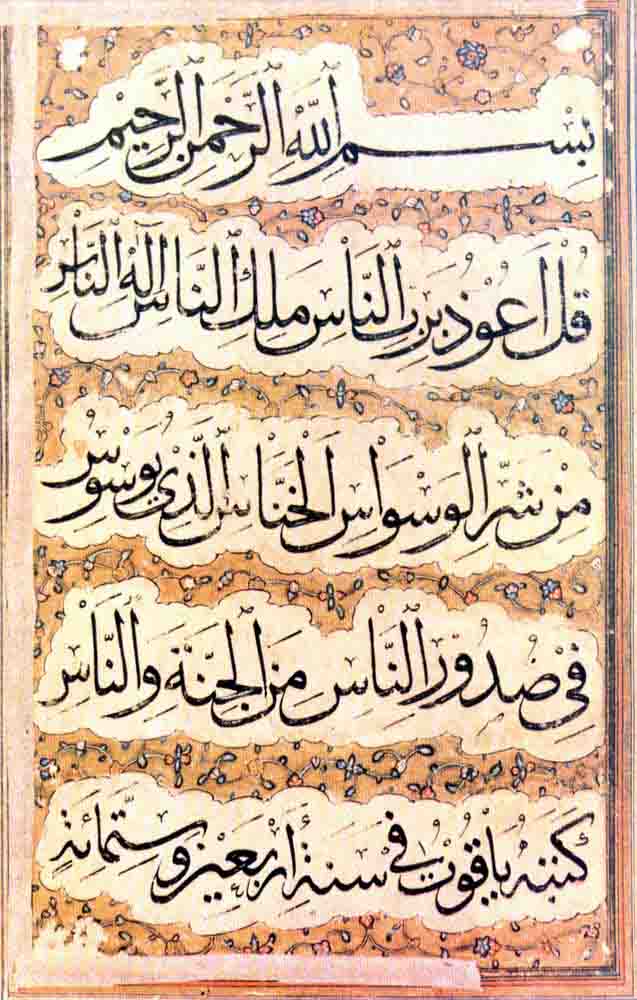 بِسْمِ اللهِ الرَّحْمَنِ الرَّحِيْمِ
قُلْ اَعُوْذُ بِرَبِّ النَّاسِ مَلِكِ النَّاسِ اِلٰهِ النَّاسِ
مِنْ شَرِّ الْوَسْوَاسِ الْخَنَّاسِ الَّذِيْ يُوَسْوِسُ
فِيْ صُدُوْرِ النَّاسِ مِنَ الْجِنَّةِ وَالنَّاسِ
كتبه ياقوت في سنة أربعين وستمائة
23